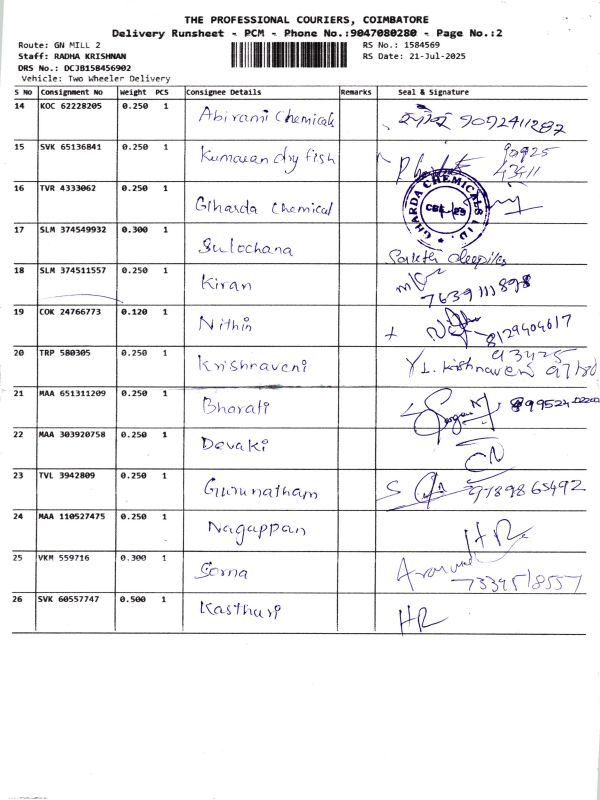 THE PROFESSIONAL COURIERS, COIMBATORE
Delivery Runsheet - PCM - Phone No.:9047080280 - Page No.:2
Route: GN MILL 2
RS No.: 1584569
Staff: RADHA KRISHNAN
RS Date: 21-Jul-2025
DRS No.: DCJB158456902
Vehicle: Two Wheeler Delivery
S NO Consignment No Weight PCS Consignee Details Remarks Seal & Signature
14 KOC 62228205 0.250 1 Abirami Chemicals 9092411287
15 SVK 65136841 0.250 1 Kumaran dry fish
16 TVR 4333062 0.250 1 Gharda Chemical
GHARDA CHEMICALS LTD.
17 SLM 374549932 0.300 1 Sulochana
18 SLM 374511557 0.250 1 Kiran 7639111898
19 COK 24766773 0.120 1 Nithin 8129404617
20 TRP 580305 0.250 1 Krishnaveni
21 MAA 651311209 0.250 1 Bharati
22 MAA 303920758 0.250 1 Devaki
23 TVL 3942809 0.250 1 Gurunatham 9789865492
24 MAA 110527475 0.250 1 Nagappan HR
25 VKM 559716 0.300 1 Sorna 7339518557
26 SVK 60557747 0.500 1 Kasthuri HR